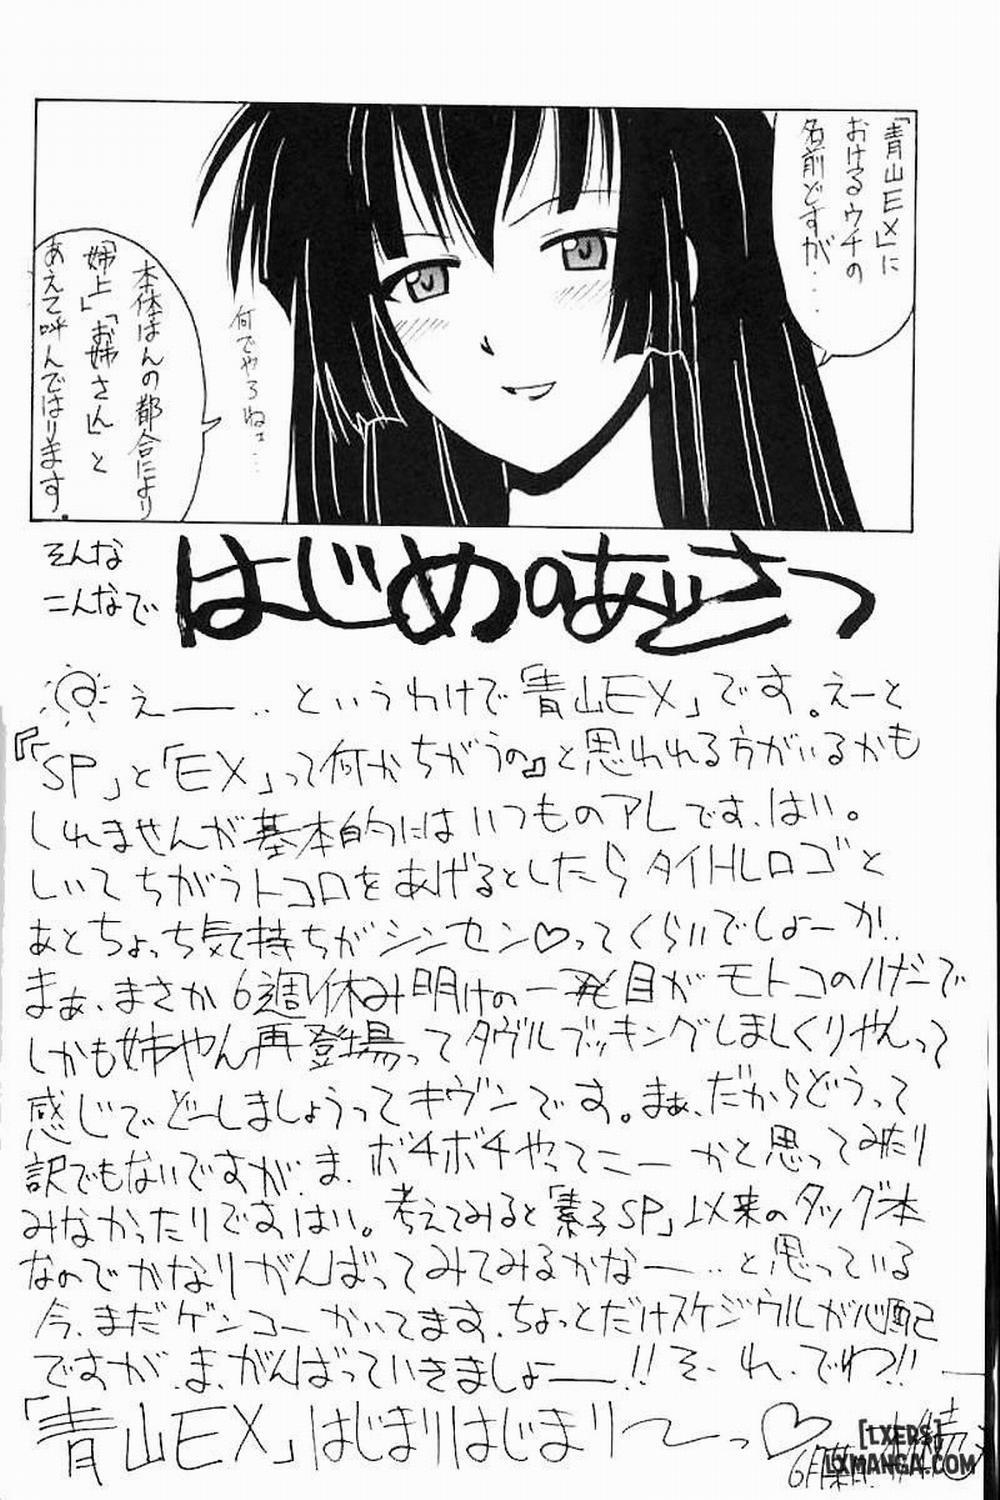 「青山EX」に
おけるウチの
名前どすが…
何でやろねェ…
本体はんの都合により
「姉上」「お姉さん」と
あえて呼んではります。
そんな
こんなで
はじめのあいさつ
えー‥というわけで「青山EX」です。えーと
『「SP」と「EX」って何がちがうの』と思われる方がいるかも
しれませんが基本的にはいつものアレです、はい。
しいてちがうトコロをあげるとしたらタイトルロゴと
あとちょっち気持ちがシンセン♡ってくらいでしょーか‥
まぁ、まさか6週休み明けの一発目がモトコのハナシで
しかも姉やん再登場ってダヴルブッキングしましくりやんって
感じで、どーしましょうってキヴンです。まぁ、だからどうって
訳でもないですが、ま、ボチボチやってこーかと思ってみたり
みなかったりです、はい。考えてみると「素子SP」以来のタッグ本
なのでかなりがんばってみてみるかなー‥と思っている
今、まだゲンコーかいてます、ちょっとだけスケジウルが心配
ですが、ま、がんばっていきましょー!!そ、れ、でわ!!
「青山EX」はじまりはじまり〜っ♡
[LXERS]
LXMANGA.COM